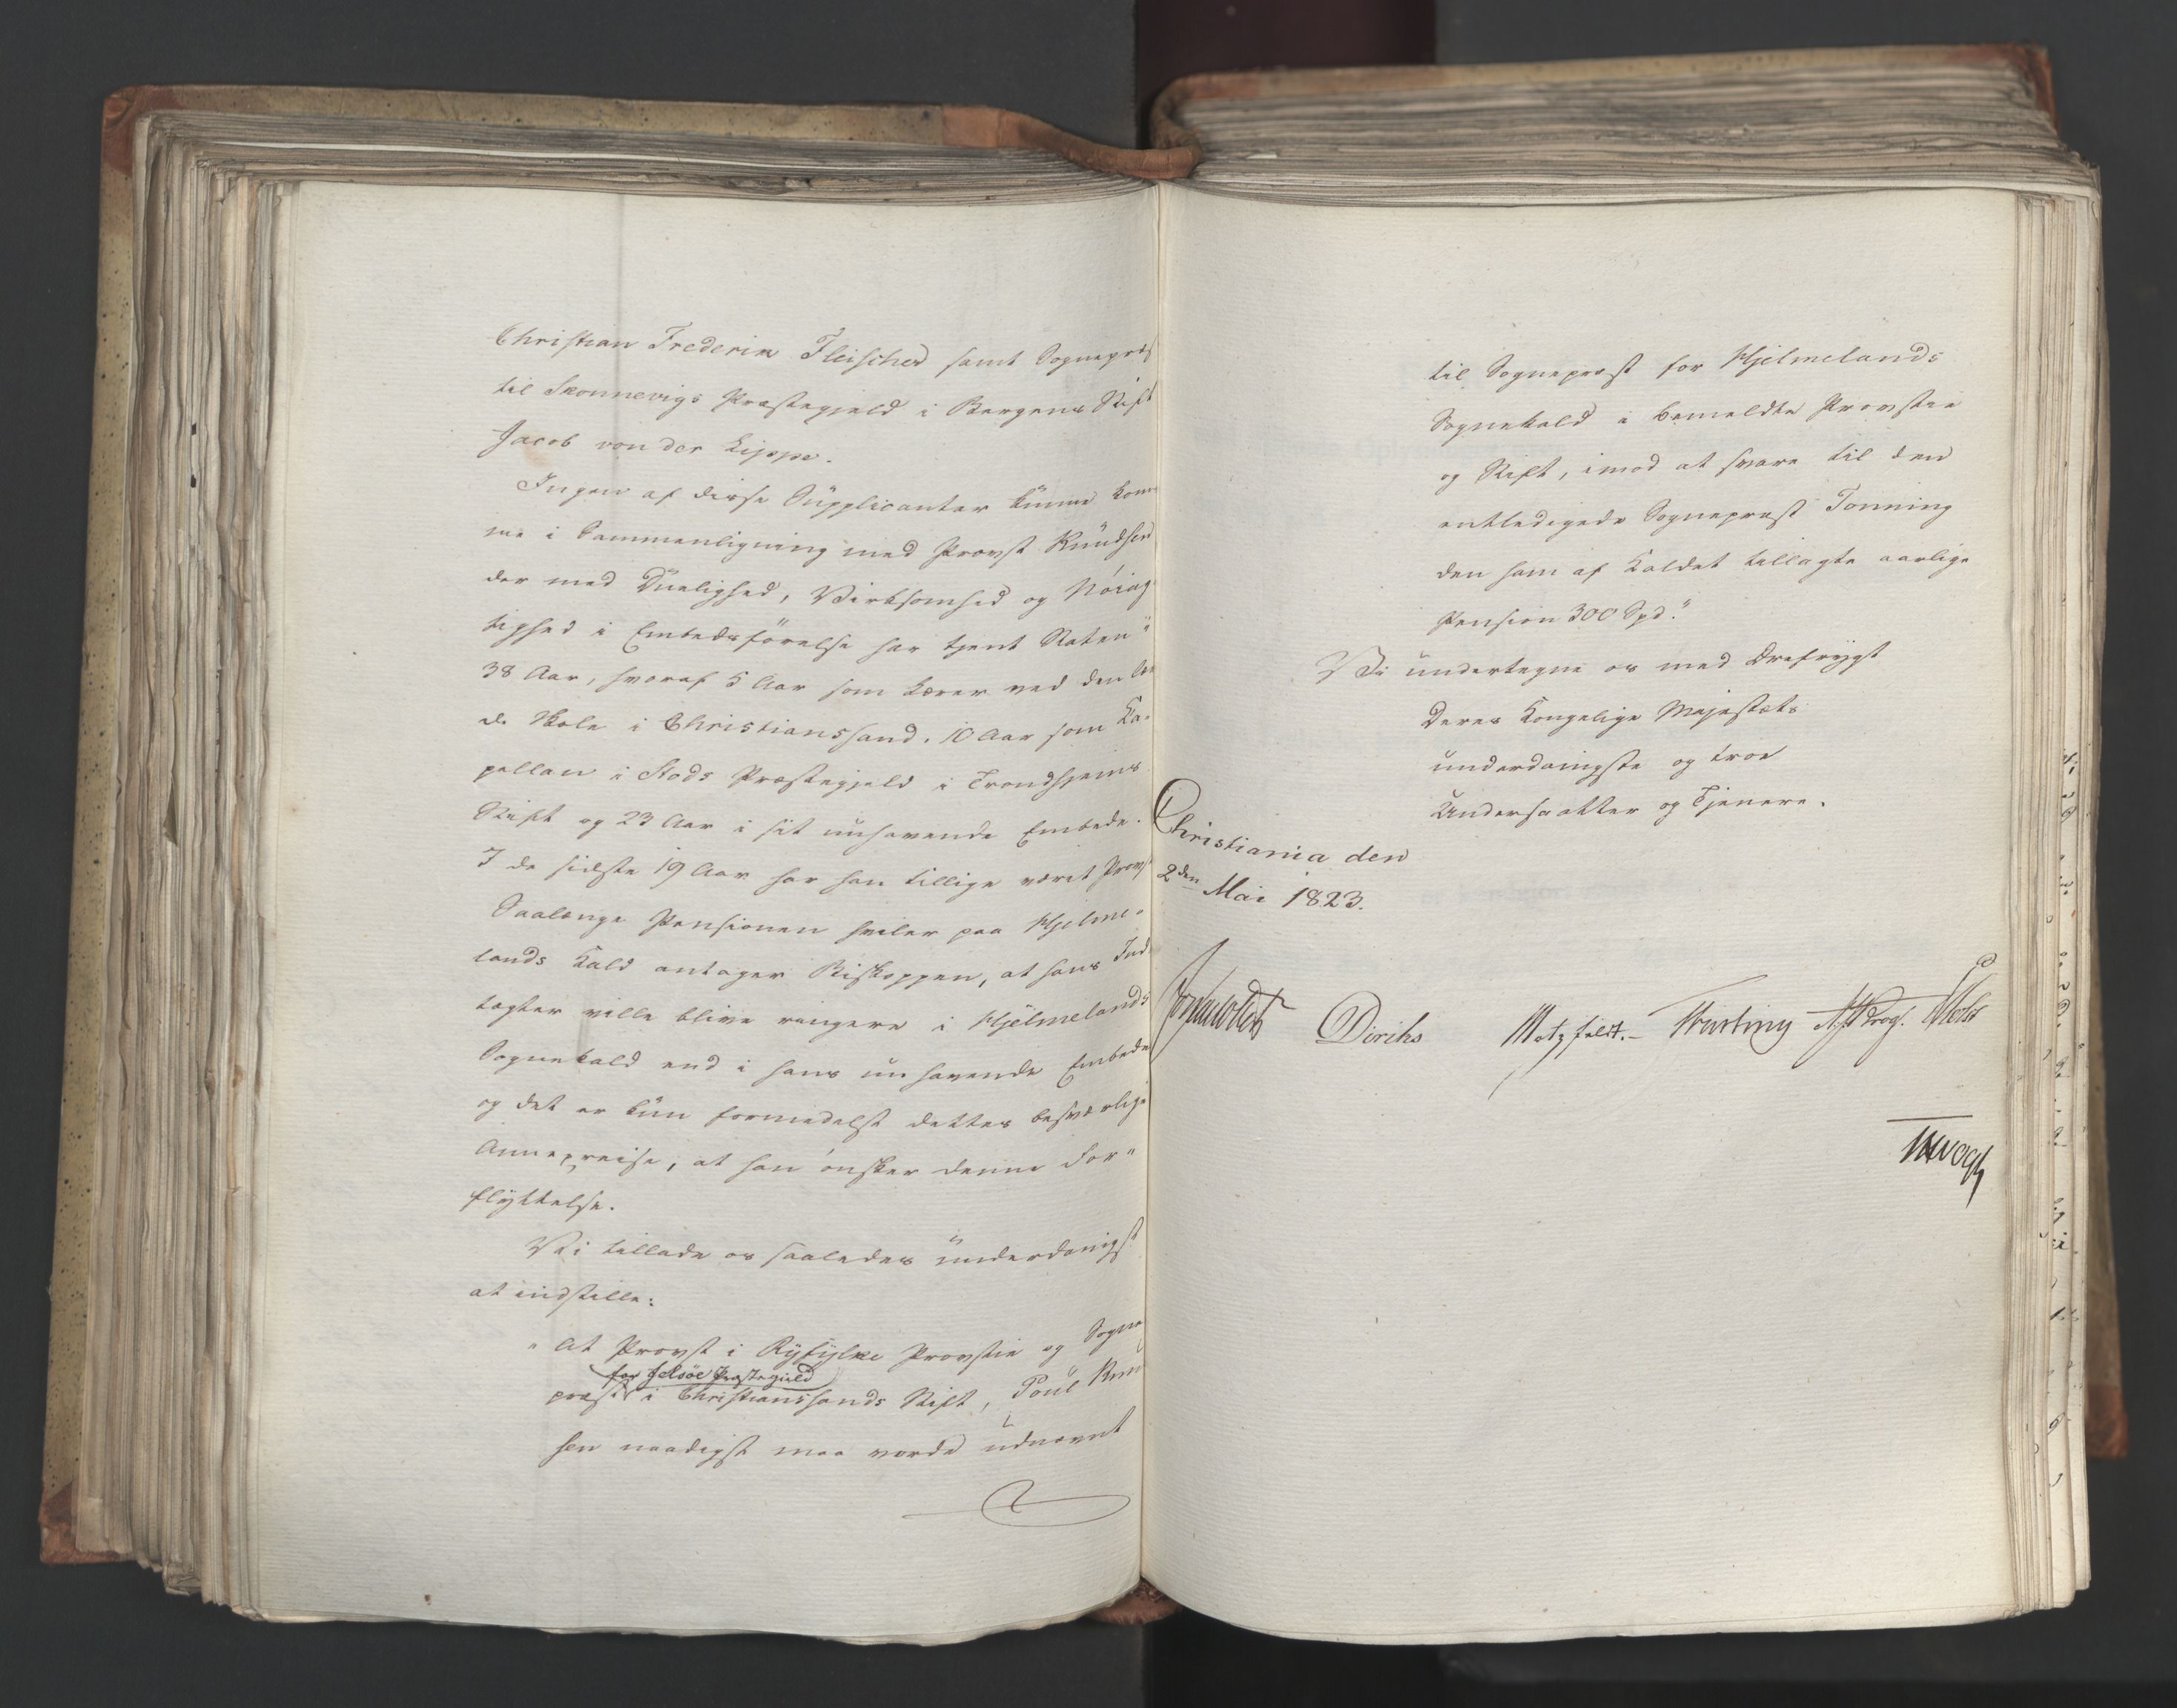 Christian Frederik Fleischer samt Sognepræst
til Skonnevigs Præstegjeld i Bergens Stift
Jacob von der Lippe.
Ingen af disse Supplicanter kunne kom-
me i Sammenligning med Provst Knudsen
der med Duelighed, Virksomhed og Nöiag
tighed i Embedsförelse har tjent Staten
38 Aar, hvoraf 5 Aar som Lærer ved den lær
de Skole i Christianssand, 10 Aar som Ka-
pellan i Stods Præstegjeld i Trondhjems
Stift og 23 Aar i sit nuhavende Embede.
I de sidste 19 Aar har han tillige været Provst
Saalænge Pensionen hviler paa Hjelme-
lands Kald antager Biskoppen, at hans Ind-
tægter ville blive ringere i Hjelmelands
Sognekald end i hans nuhavende Embede
og det er kun formedelst dettes besværlige
Annexreise, at han önsker denne For-
flyttelse.
Vi tillade os saaledes underdanigst
at indstille:
"At Provst i Ryfylke Provstie og Sogne
for Jelsöe Præstegield
præst i Christianssands Stift, Poul Knud
sen naadigst maa vorde udnævnt
til Sognepræst for Hjelmelands
Sognekald i bemeldte Provstie
og Stift, imod at svare til den
entledigede Sognepræst Tonning
den ham af Kaldet tillagte aarlige
Pension 300 Spd."
Vi undertegne os med Ærefrygt
Deres Kongelige Majestæts
underdanigste og troe
Undersaatter og Tjenere.
Christiania den
2den Mai 1823.
Diriks
Motzfeldt.